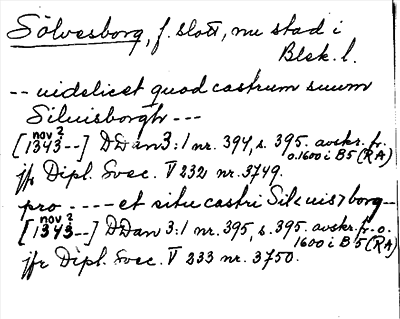 Sölvesborg, f. slott, nu stad i
Blek. l.
-- uidelicet quod castrum suum
Siluisborgh ---
[1343 nov 2 --] DDan 3:1 nr. 394, s. 395. avskr. fr.
o. 1600 i B5 (RA)
jfr Dipl. Svec. V 232 nr. 3749.
pro ---- et situ castri Sil<uis>borg--
[1343 nov 2 --] DDan 3:1 nr. 395, s. 395. avskr. fr. o.
1600 i B5 (RA)
jfr Dipl. Svec. V 233 nr. 3750.